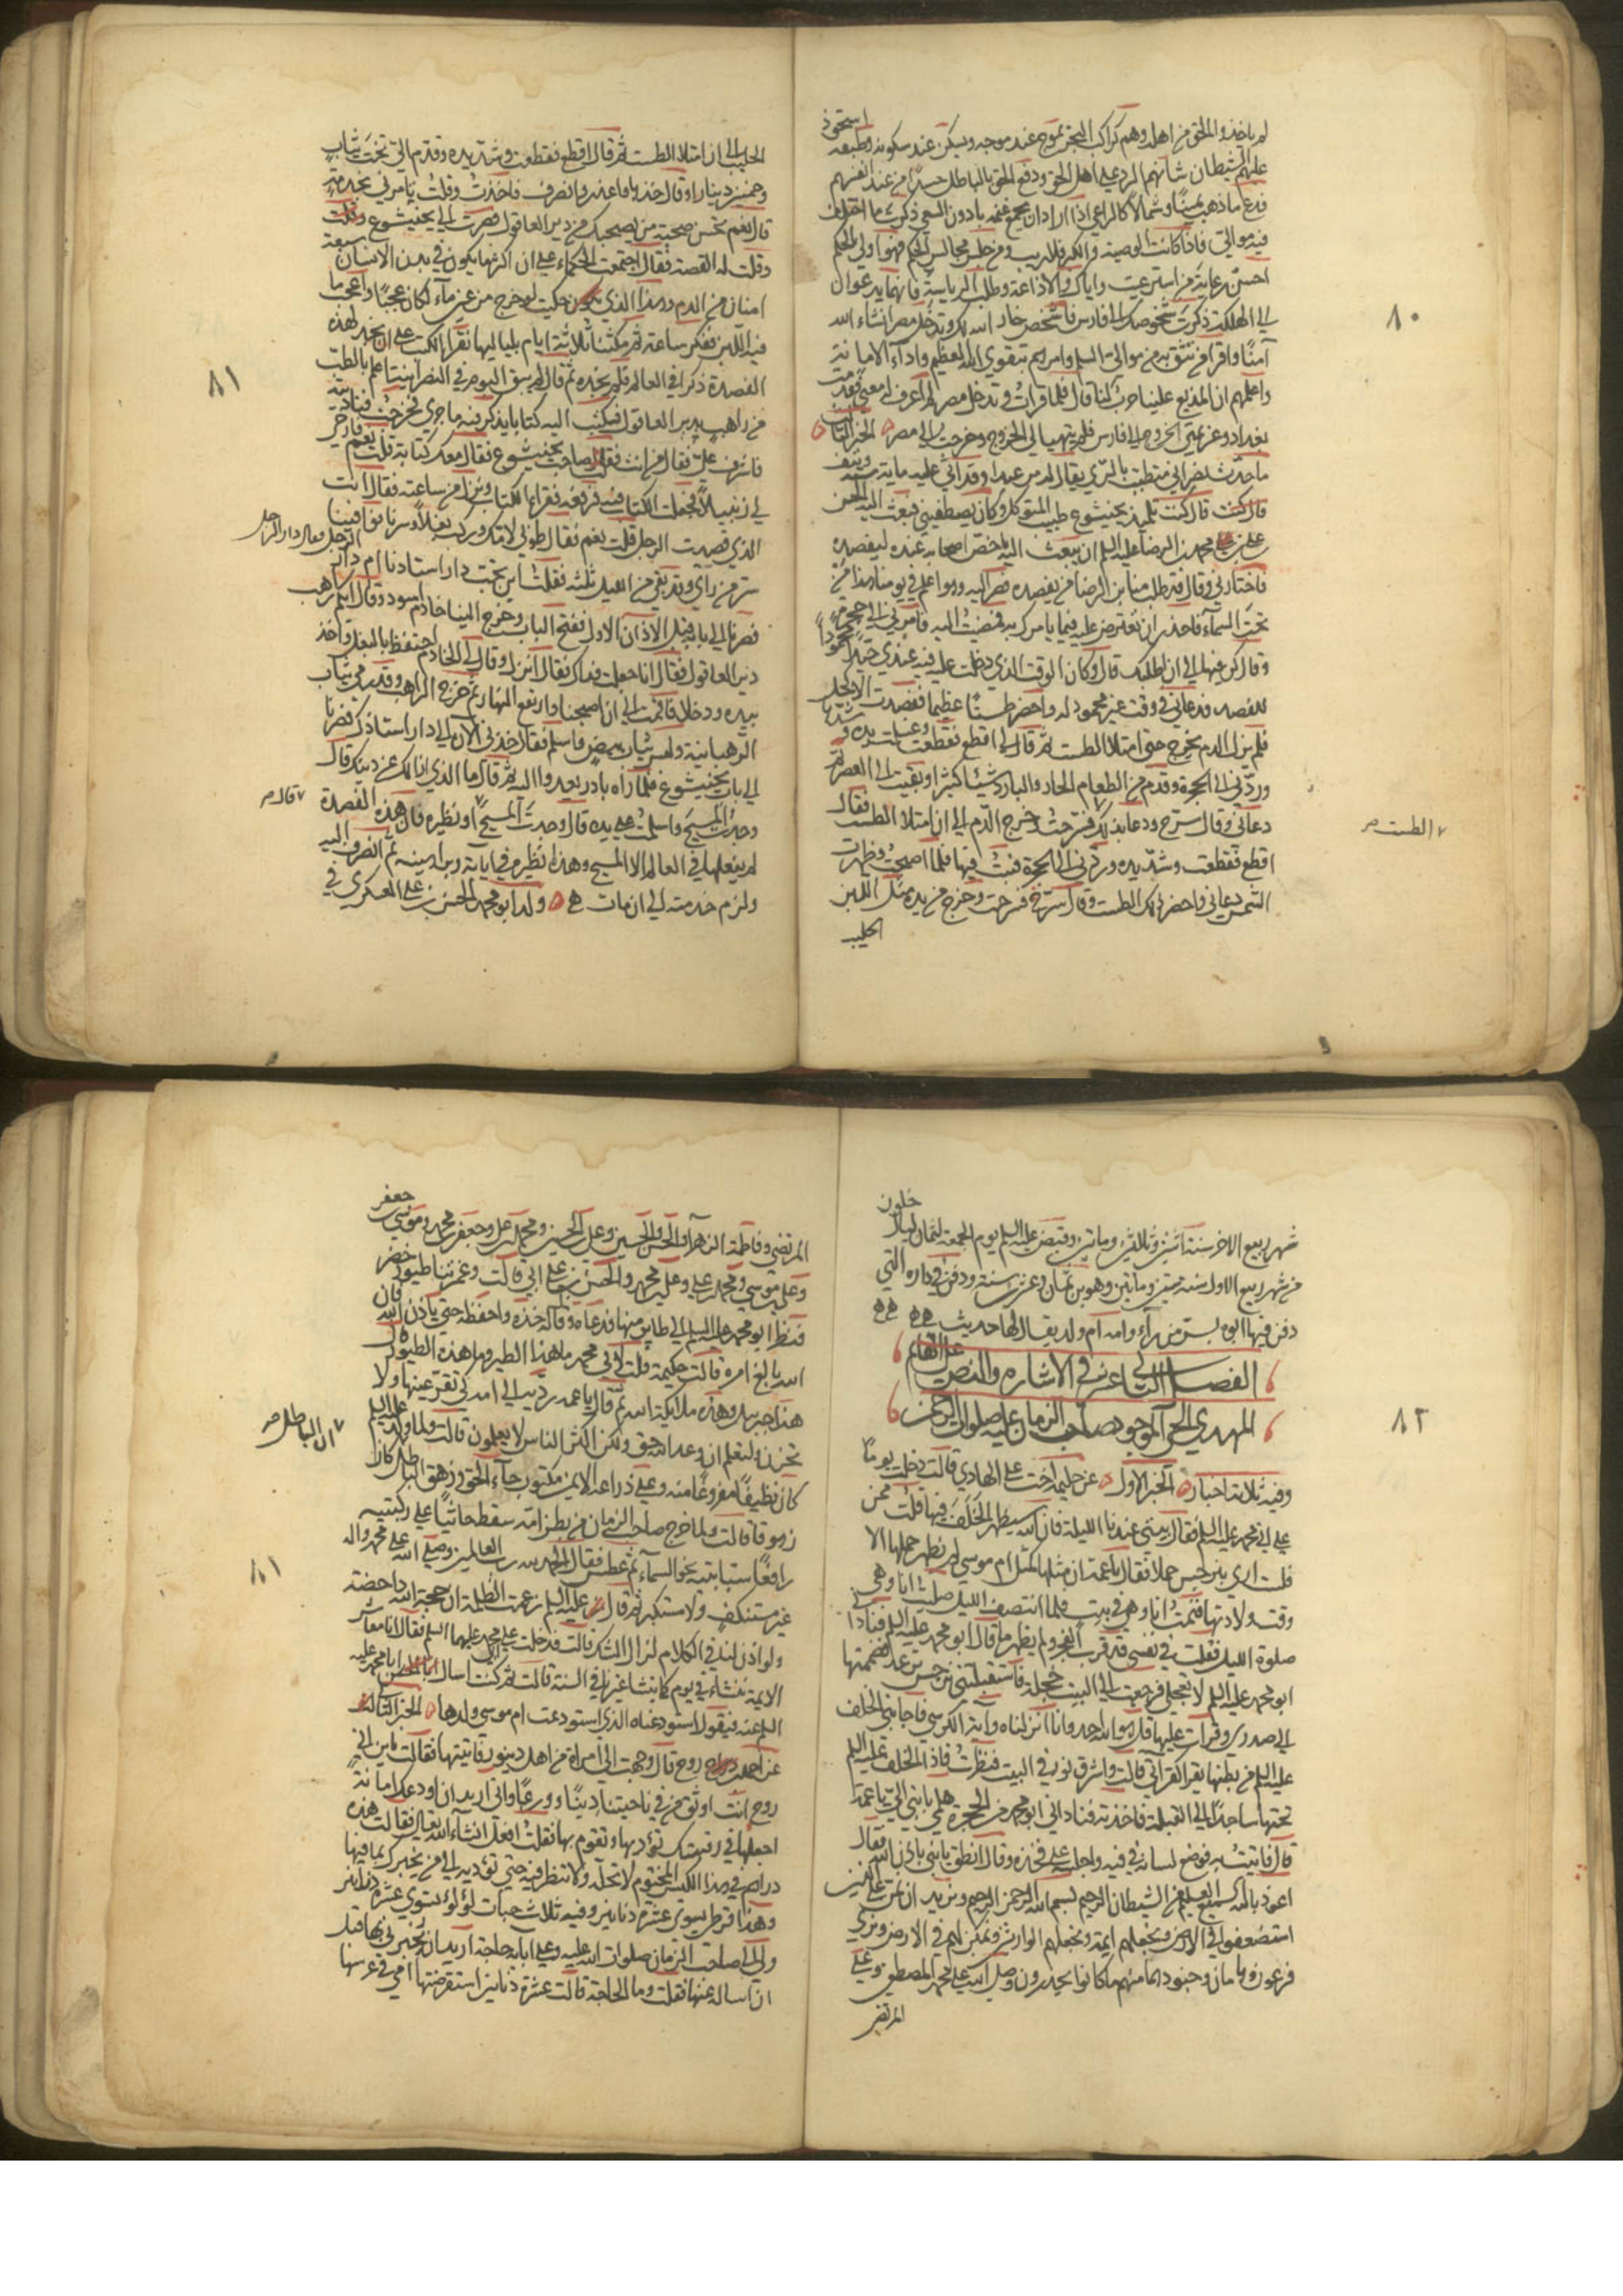 لم ياخذوا الحق من اهله وهم كراكب البحر يموج عند موجه ويسكن عند سكونه وطبقة استحوذ
عليهم الشيطان شانهم الرد على اهل الحق ودفع الحق بالباطل حسدا من عند انفسهم
فدع ما ذهب يمينا وشمالا كالراعي اذا اراد ان يجمع غنمه بادون السعي ذكرت ما اختلف
فيه موالي فاذا كانت الوصية والكبر فلا ريب ومن جلس مجالس الحكم فهو اولى بالحكم
احسن رعاية من استرعيت واياك والاذاعة وطلب الرياسة فانهما يدعوان
الى الهلكة ذكرت شخوصك الى فارس فاشخص خار الله لك وتدخل مصر انشاء الله
آمنا واقرا من تثق به من موالي السلم وامرهم بتقوى الله العظيم واداء الامانة
واعلمهم ان المذيع علينا حرب لنا قال فلما قرات وتدخل مصر لم اعرف له معنى فقدمت
بغداد وعزيمتي الخروج الى فارس فلم يتهيا لي الخروج وخرجت الى مصر الخبر الثالث
ما حدث نصراني متطبب بالري يقال له مر عبدا وقد اتى عليه ماية سنة ونيف
قال كنت تلميذ بختيشوع طبيب المتوكل وكان يصطفيني فبعث اليه الحسن
علي بن محمد بن الرضا عليه السلم ان يبعث اليه باخص اصحابه عنده ليفصده
فاختارني وقال قد طلب منا ابن الرضا من يفصده فصر اليه وهو اعلم في يومنا هذا من
تحت السماء فاحذر ان تعترض عليه فيما يامرك به فمضيت اليه فامر بي الى حجرة
وقال كن فيها الى ان اطلبك قال وكان الوقت الذي دخلت عليه فيه عندي جيدا محمودا
للفصد فدعاني في وقت غير محمود له واحضر طستا عظيما ففصدت الاكحل
فلم يزل الدم يخرج حتى امتلا الطست ثم قال لي اقطع فقطعت وغسل يده وشدها
وردني الى الحجرة وقدم من الطعام الحار والبارد شيئا كثيرا وبقيت الى العصر ثم
دعاني وقال سرح ودعا بذلك فسرحت وخرج الدم الى ان امتلا الطست فقال
الطست صح
اقطع فقطعت وشد يده وردني الى الحجرة فبت فيها فلما اصبحت وظهرت
الشمس دعاني واحضر ذلك الطست وقال سرح فسرحت وخرج من يده مثل اللبن
الحليب
٨٠
الحليب الى ان امتلا الطست ثم قال اقطع فقطعت وشد يده وقدم الي تخت ثياب
وخمسين دينارا وقال خذ هذا واعذر وانصرف فاخذت وقلت يامرني بخدمة
قال نعم تحسن صحبة من يصحبك من دير العاقول فصرت الى بختيشوع وقلت
وقلت له القصة فقال اجتمعت الحكماء على ان اكثر ما يكون في بدن الانسان سبعة
امنان من الدم وهذا الذي حكيت لو خرج من عين مآء لكان عجبا واعجب ما
فيه اللبن ففكر ساعة ثم مكثنا ثلاثة ايام بلياليها نقرا الكتب على ان نجد لهذه
الفصدة ذكرا في العالم فلم نجده ثم قال لم يبق اليوم في النصرانية اعلم بالطب
من راهب بدير العاقول فكتب اليه كتابا يذكر فيه ما جرى فخرجت فناديته
فاشرف علي فقال من انت فقلت صاحب بختيشوع فقال معك كتابه قلت نعم فارخى
لي زنبيلا فجعلت الكتاب فيه فرفعه فقرا الكتاب ونزل من ساعته فقال انت
الذي فصدت الرجل قلت نعم فقال طوبى لامك وركب بغلا وسرنا فوافينا
سر من راي وقد بقي من الليل ثلثه فقلت اين تحب دار استاذنا ام دار الرجل فقال دار الرجل
فصرنا الى بابه قبل الاذان الاول ففتح الباب وخرج الينا خادم اسود وقال ايكم راهب
دير العاقول فقال انا جعلت فداك فقال انزل وقال لي الخادم احتفظ بالبغل واخذ
بيده ودخلا فاقمت الى ان اصبحنا وارتفع النهار ثم خرج الراهب وقد رمى ثياب
الرهبانية ولبس ثياب بيض واسلم فقال خذني الآن الى دار استاذك فصرنا
الى باب بختيشوع فلما راه بادر يعدو اليه ثم قال ما الذي ازالك عن دينك قال
وجدت المسيح واسلمت على يده قال وجدت المسيح او نظيره قال هذه الفصدة
قال صح
لم يفعلها في العالم الا المسيح وهذا نظيره في اياته وبراهينه ثم انصرف اليه
ولزم خدمته الى ان مات ولد ابو محمد الحسن بن علي العسكري في
٨١
شهر ربيع الاخر سنة اثنتين وثلاثين وماتين وقبض عليه السلم يوم الجمعة لثمان ليال خلون
من شهر ربيع الاول سنة ستين وماتين وهو ابن ثمان وعشرين سنة ودفن في داره التي
دفن فيها ابوه بسر من رآى وامه ام ولد يقال لها حديث
الفصل الثاني عشر في الاشارة والنص على القايم
المهدي الحي الموجود صاحب الزمان عليه صلوات الرحمن
٨٢
وفيه ثلاثة اخبار الخبر الاول عن حليمة اخت علي الهادي قالت دخلت يوما
على ابي محمد عليه السلم فقال بيتي عندنا الليلة فان الله سيظهر الخلف فيها قلت ممن
فلست ارى بنرجس حملا فقال يا عمة ان مثلها كمثل ام موسى لم يظهر حملها الا
وقت ولادتها فنمت انا وهي في بيت فلما انتصف الليل صليت انا وهي
صلوة الليل فقلت في نفسي قد قرب الفجر ولم يظهر ما قال ابو محمد عليه السلم فنادا
ابو محمد عليه السلم لا تعجلي فرجعت الى البيت خجلة فاستقبلتني نرجس ترعد فضممتها
الى صدري وقرات عليها قل هو الله احد وانا انزلناه وآية الكرسي فاجابني الخلف
عليه السلم من بطنها يقرا كقراتي قالت واشرق نور في البيت فنظرت فاذا الخلف عليه السلم
تحتها ساجدا الى القبلة فاخذته فناداني ابو محمد من الحجرة هلمي بابني الي يا عمة
قال فاتيته به فوضع لسانه في فيه واجلسه على فخذه وقال انطق يا بني باذن الله فقال
اعوذ بالله السميع العليم من الشيطان الرجيم بسم الله الرحمن الرحيم ونريد ان نمن على الذين
استضعفوا في الارض ونجعلهم ايمة ونجعلهم الوارثين ونمكن لهم في الارض ونري
فرعون وهامان وجنودهما منهم ما كانوا يحذرون وصلى الله على محمد المصطفى وعلي
المرتضى
المرتضى وفاطمة الزهرآء والحسن والحسين وعلي بن الحسين ومحمد بن علي وجعفر بن محمد وموسى بن جعفر
وعلي بن موسى ومحمد بن علي وعلي بن محمد والحسن بن علي ابي قالت وغمرتنا طيور خضر
فنظر ابو محمد عليه السلم الى طاير منها فدعاه وقال له خذه واحفظه حتى ياذن الله فان
الله بالغ امره قالت حكيمة قلت لابي محمد ما هذا الطير وما هذه الطيور قال
هذا جبريل وهذه ملايكة الله ثم قال يا عمة رديه الى امه كي تقر عينها ولا
تحزن ولتعلم ان وعد الله حق ولكن اكثر الناس لا يعلمون قالت ولما ولد عليه السلم
كان نظيفا مفروغا منه وعلى ذراعه الايمن مكتوب جآء الحق وزهق الباطل كان
ان الباطل صح
زهوقا قالت ولما خرج صاحب الزمان من بطن امه سقط جاثيا على ركبتيه
رافعا سبابتيه نحو السمآء ثم عطس فقال الحمد لله رب العالمين وصلى الله على محمد واله
غير مستنكف ولا مستكبر ثم قال عليه السلم زعمت الظلمة ان حجة الله داحضة
ولو اذن لنا في الكلام لزال الشك قالت فدخلت على ابي محمد عليهما السلم فقال انا معاشر
الايمة ننشاء في يوم كما ينشا غيرنا في السنة قالت ثم كنت اسال ابا محمد عليه
السلم عنه فيقول استودعناه الذي استودعت ام موسى ولدها الخبر الثالث
عن احمد بن روح قال وجهت الي امراة من اهل دينور فاتيتها فقالت يا بن ابي
روح انت اوثق من في ناحيتنا دينا وورعا واني اريد ان اودعك امانة
اجعلها في رقبتك تؤديها وتقوم بها فقلت افعل انشاء الله تعالى فقالت هذه
دراهم في هذا الكيس المختوم لا تحله ولا تنظر فيه حتى تؤديه الى من يخبرك بما فيها
وهذا قرطي يسوى عشرة دنانير وفيه ثلاث حبات لؤلؤ تسوى عشرة دنانير
ولي الى صاحب الزمان صلوات الله عليه وعلى ابايه حاجة اريد ان يخبرني بها قبل
ان اساله عنها فقلت وما الحاجة قالت عشرة دنانير استقرضتها امي في عرسها
٨١